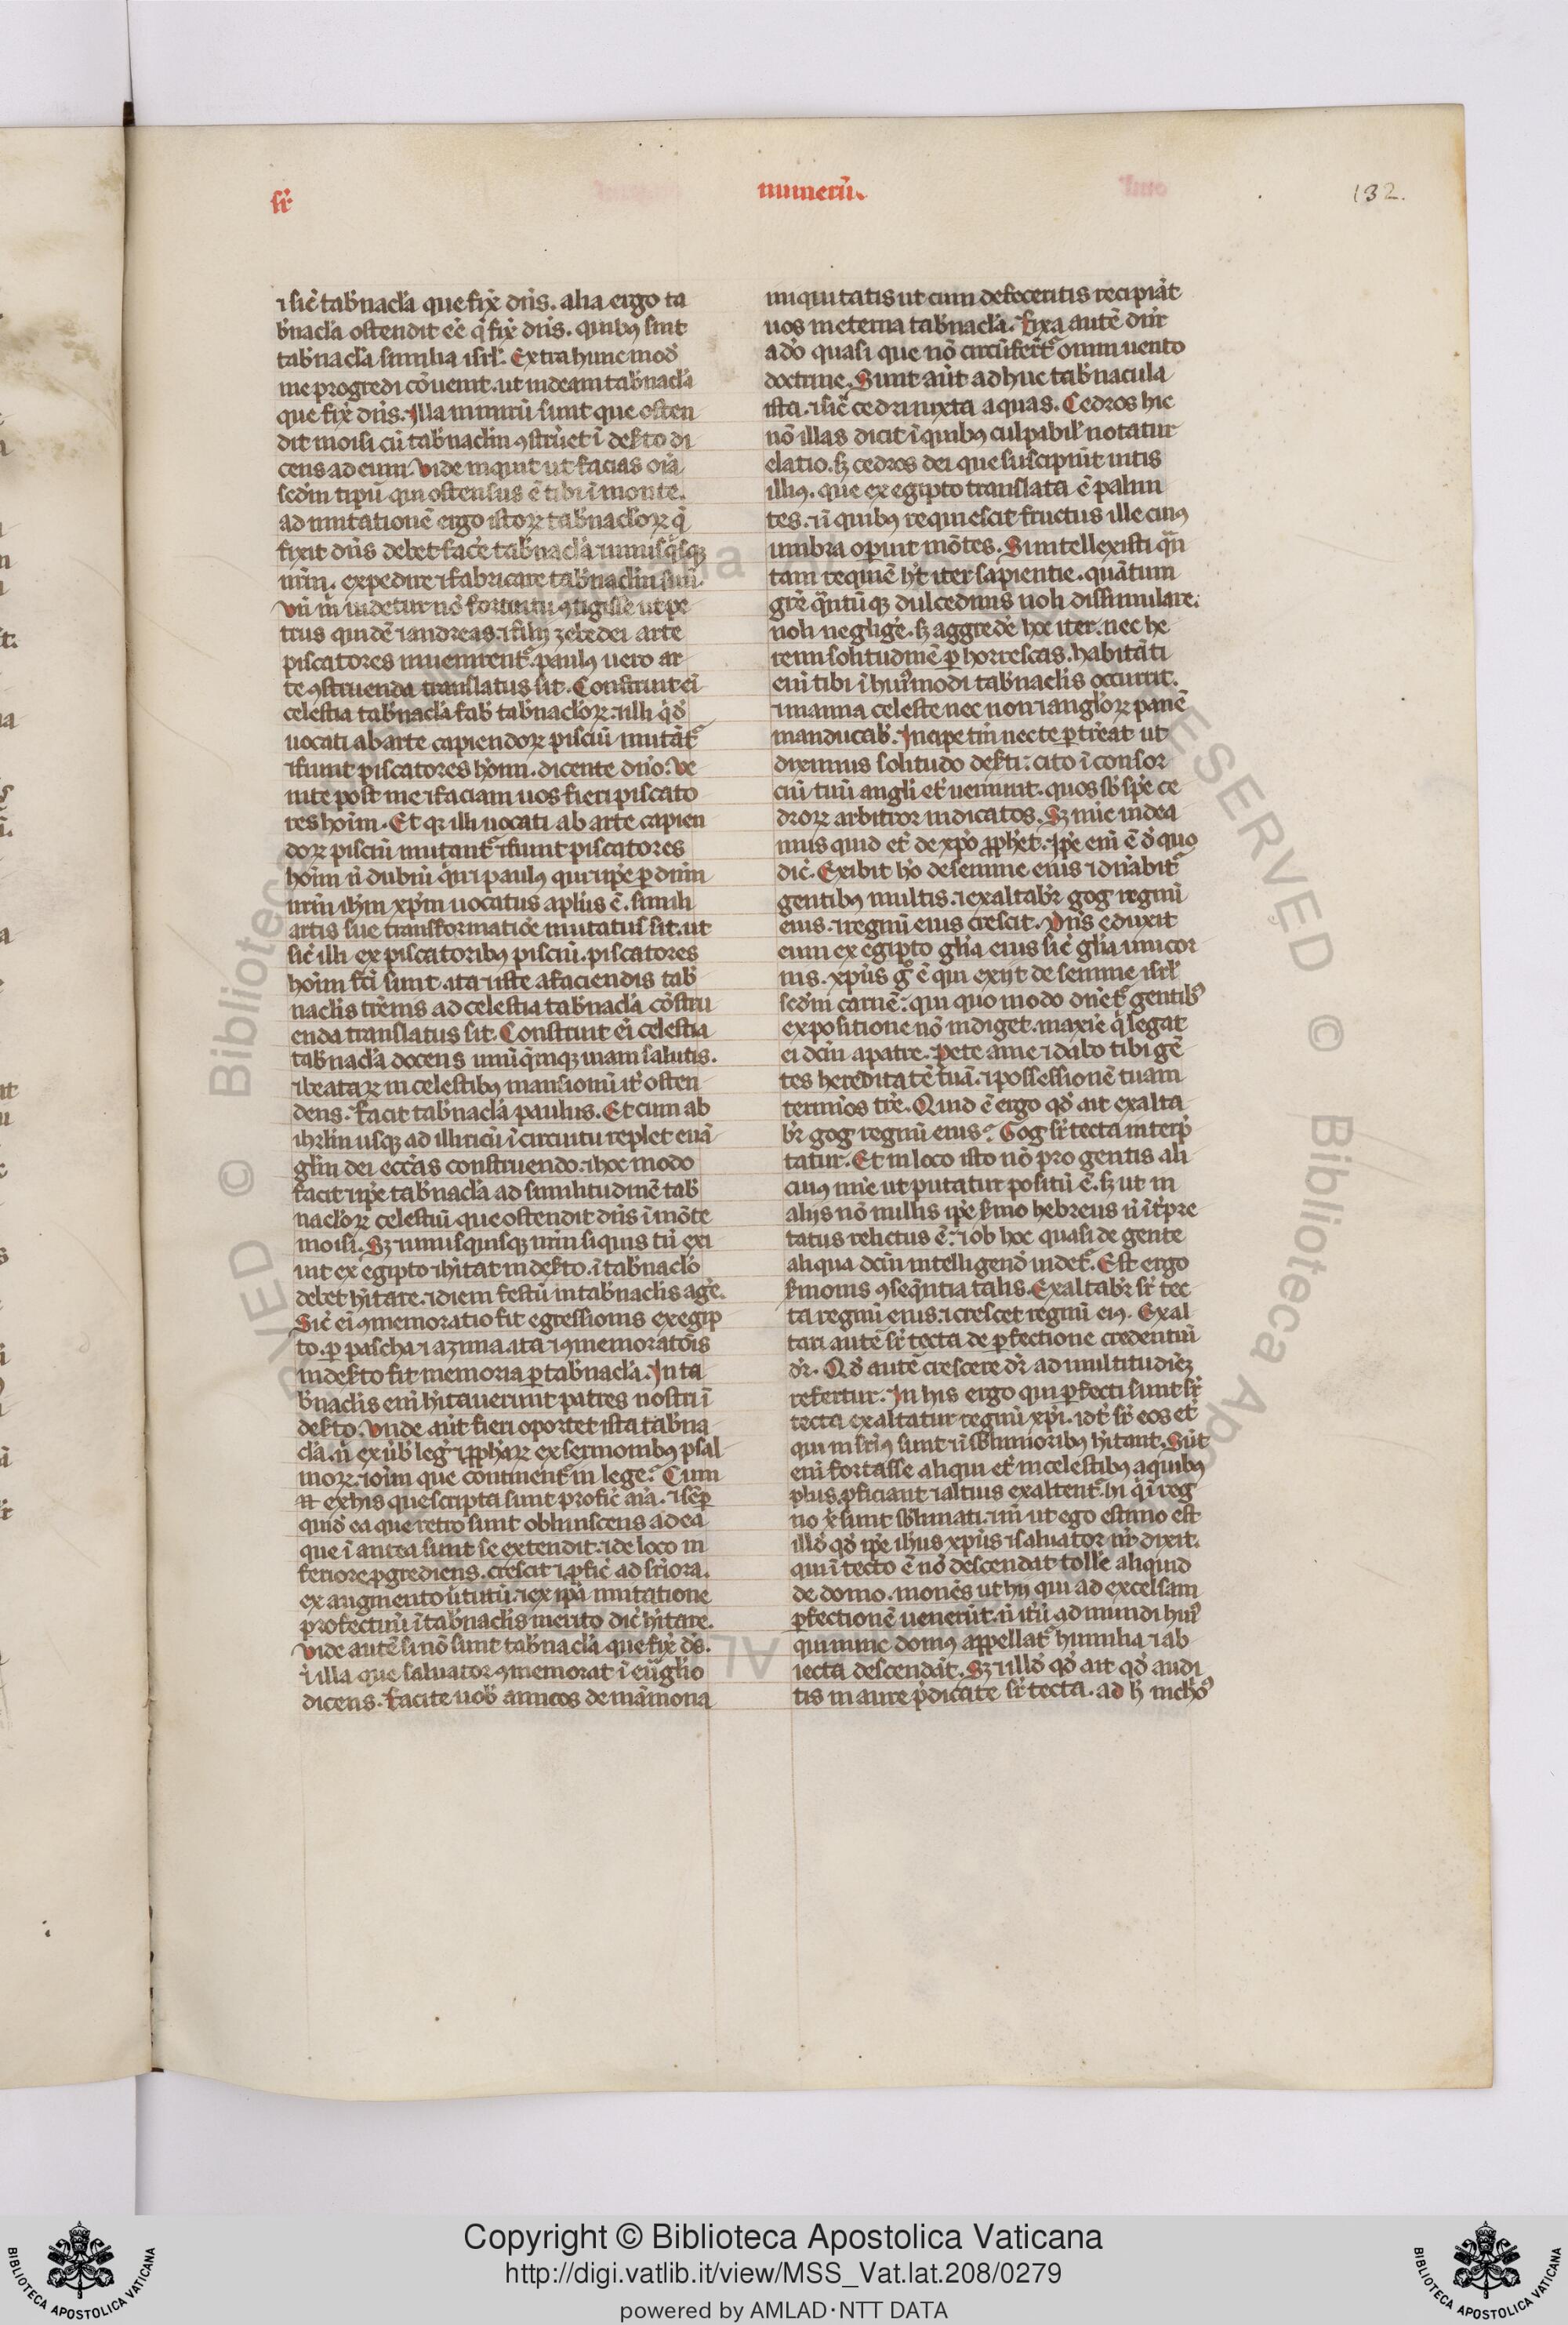 sr̄
numerū.
132.
⁊ sic̄ tab̄nacl̄a que fix̄ dn̄s. alia ergo ta
b̄nacl̄a ostendit eē q̄ fix̄ dn̄s. quibꝰ sint
tab̄nacl̄a similia isrl̄. Extra hunc mod̄
me progredi cōuenit. ut uideam tab̄nacl̄a
que fix̄ dn̄s. Illa nimirū sunt que osten
dit moisi cū tab̄naclm̄ ꝯstrueret ī des̄to di
cens ad eum. Vide inquit ut facias oīa
scd̄m tipū qui ostensus ē tibi ī monte.
ad imitationē ergo istoꝝ tab̄nacl̄oꝝ q̄
fixit dn̄s debet facē tab̄nacl̄a ⁊ unusq̄sqꝫ
nr̄m. expedire ⁊ fabricare tab̄naclm̄ suū.
Vn̄ m̄ uidetur nō fortuitu ꝯtigisse ut pe
trus quidē ⁊ andreas. ⁊ filij zebedei arte
piscatores inuenirent̄. paulꝰ uero ar
te ꝯstruenda translatus sit. Construit ei
celestia tab̄nacl̄a fab̄ tab̄nacl̄oꝝ. ⁊ illi qd̄
uocati ab arte capiendoꝝ pisciū mutāt̄
⁊ fiunt piscatores hoīm. dicente dn̄o. Ve
nite post me ⁊ faciam uos fieri piscato
res hoīm. Et qꝛ illi uocati ab arte capien
doꝝ pisciū mutant̄ ⁊ fiunt piscatores
hoīm n̄ dubiū qn̄ ⁊ paulus qui ⁊ ip̄e ꝑ dn̄m
nr̄m ih̄m xp̄m uocatus apl̄us ē. simili
artis sue transformatiōe mutatus sit. ut
sic̄ illi ex piscatoribꝰ pisciū. piscatores
hoīm fc̄i sunt. ita ⁊ iste a faciendis tab̄
naclis tr̄enis ad celestia tab̄nacl̄a cōstru
enda translatus sit. Construit ei celestia
tab̄nacl̄a docens unūq̄mqꝫ uiam salutis.
⁊ beataꝝ in celestibꝰ mansionū it̄ osten
dens. facit tab̄nacl̄a paulus. Et cum ab
ihrlm̄ usqꝫ ad illiricū ī circuitu replet euā
glm̄ dei eccl̄as construendo. ⁊ hoc modo
facit ⁊ ip̄e tab̄nacl̄a ad similitudinē tab̄
nacl̄oꝝ celestiū que ostendit dn̄s ī mōte
moisi. Sꝫ ⁊ unusquisqꝫ nr̄m si quis tn̄ exi
uit ex egipto ⁊ hītat in des̄to. ī tab̄naclo
debet hītare. ⁊ diem festū in tab̄naclis agē.
Sic̄ ei ꝯmemoratio fit egressionis ex egip
to. ꝑ pascha ⁊ azima. ita ⁊ ꝯmemoratōis
in des̄to fit memoria ꝑ tab̄nacl̄a. In ta
b̄naclis eni hītauerunt patres nostri ī
des̄to. Vnde aūt fieri oportet ista tab̄na
cl̄a. n̄ ex ūb̄ leḡ ⁊ ꝓphaꝝ ex sermonibꝰ psal
moꝝ. ⁊ oīm que continent̄ in lege. Cum
n̄ ex his que scripta sunt profic̄ aīa. ⁊ sēꝑ
quid̄ ea que retro sunt obliuiscens ad ea
que ī antea sunt se extendit. ⁊ de loco in
feriore ꝓgrediens. crescit ⁊ ꝓfic̄ ad sr̄iora.
ex augmento ūtutū. ⁊ ex ip̄a mutatione
profectuū ī tab̄naclis merito dic̄ hītare.
Vide autē si nō sunt tab̄nacl̄a que fix̄ ds̄.
⁊ illa que saluator ꝯmemorat ī euglīo
dicens. facite uob̄ amicos de māmona
iniquitatis ut cum defeceritis recipiāt
uos in eterna tab̄nacl̄a. fixa autē dn̄r
a dō quasi que nō circūfert̄ omni uento
doctrine. Sunt aūt adhuc tab̄nacula
ista. ⁊ sic̄ cedri iuxta aquas. Cedros hic
nō illas dicit ī quibꝰ culpabilr̄ notatur
elatio. sꝫ cedros dei que suscipiūt uitis
illiꝰ. que ex egipto translata ē palmi
tes. ⁊ ī quibꝰ requiescit fructus ille cuiꝰ
umbra opuit mōtes. Si intellexisti qn̄
tam requiē h̄t iter sapientie. quātum
grē qn̄tūqꝫ dulcedinis noli dissimulare.
noli negligē. sꝫ aggredē hoc iter. nec he
remi solitudinē ꝑhorrescas. habitāti
eni tibi ī hui̾modi tab̄naclis occurrit.
⁊ manna celeste nec non ⁊ anglōꝝ panē
manducab̄. Incipe tm̄ nec te ꝑtreat ut
diximus solitudo des̄ti. cito ī consor
ciū tuū angli et̄ ueniunt. quos sb̄ spē ce
droꝝ arbitror indicatos. Sꝫ nūc uidea
mus quid et̄ de xp̄o ꝓphet̄. Ip̄e eni ē d̄ quo
dic̄. Exibit hō de semine eius ⁊ dn̄abit̄
gentibꝰ multis. ⁊ exaltabr̄ gog regnū
eius. ⁊ regnū eius crescit. Dn̄s eduxit
eum ex egipto glīa eius sic̄ glīa unicor
nis. xp̄us ḡ ē qui exijt de semine isrl̄
scd̄m carnē. qui quo modo dn̄et̄ gentibꝰ
expositione nō indiget. maxīe q̄ legat
ei dc̄m a patre. Pete a me ⁊ dabo tibi gē
tes hereditatē tuā. ⁊ possessionē tuam
termīos tr̄e. Quid ē ergo qd̄ ait exalta
br̄ gog regnū eius. Gog sr̄ tecta interp̄
tatur. Et in loco isto nō pro gentis ali
cuiꝰ nōīe ut putatur positū ē. sꝫ ut in
alijs nō nullis ip̄e s̄mo hebreus n̄ īt̄pre
tatus relictus ē. ⁊ ob hoc quasi de gente
aliqua dc̄m intelligend̄ uidet̄. Est ergo
s̄monis ꝯseq̄ntia talis. Exaltabr̄ sr̄ tec
ta regnū eius. ⁊ crescet regnū eiꝰ. Exal
tari autē sr̄ tecta de ꝑfectione credentiū
dr̄. Qd̄ autē crescere dr̄ ad multitudinē
refertur. In his ergo qui ꝑfecti sunt sr̄
tecta exaltatur regnū xp̄i. idē sr̄ eos et̄
qui in sr̄iꝰ sunt ⁊ ī sb̄limioribꝰ hītant. Sūt
eni fortasse aliqui et̄ in celestibꝰ a quibꝰ
plus ꝓficiant ⁊ altius exaltent̄. hi q̄ ī reg
no x̄ sunt sb̄limati. ⁊ ut ego estimo est
illd̄ qd̄ ip̄e ih̄us xp̄us ⁊ saluator nr̄ dixit.
qui ī tecto ē nō descendat tollē aliquid
de domo. monēs ut hij qui ad excelsam
ꝑfectionē uenerūt. n̄ itū ad mundi hui̾
qui nunc domꝰ appellat̄ humilia ⁊ ab
iecta descendāt. Sꝫ ⁊ illd̄ qd̄ ait qd̄ audi
tis in aure p̄dicate sr̄ tecta. ad h̄
Copyright © Biblioteca Apostolica Vaticana
http://digi.vatlib.it/view/MSS_Vat.lat.208/0279
powered by AMLAD·NTT DATA